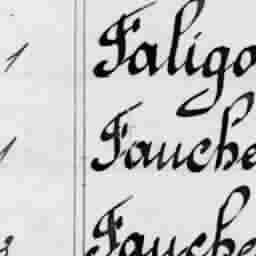 1 Faligo
1 Fauche
3 Fauche